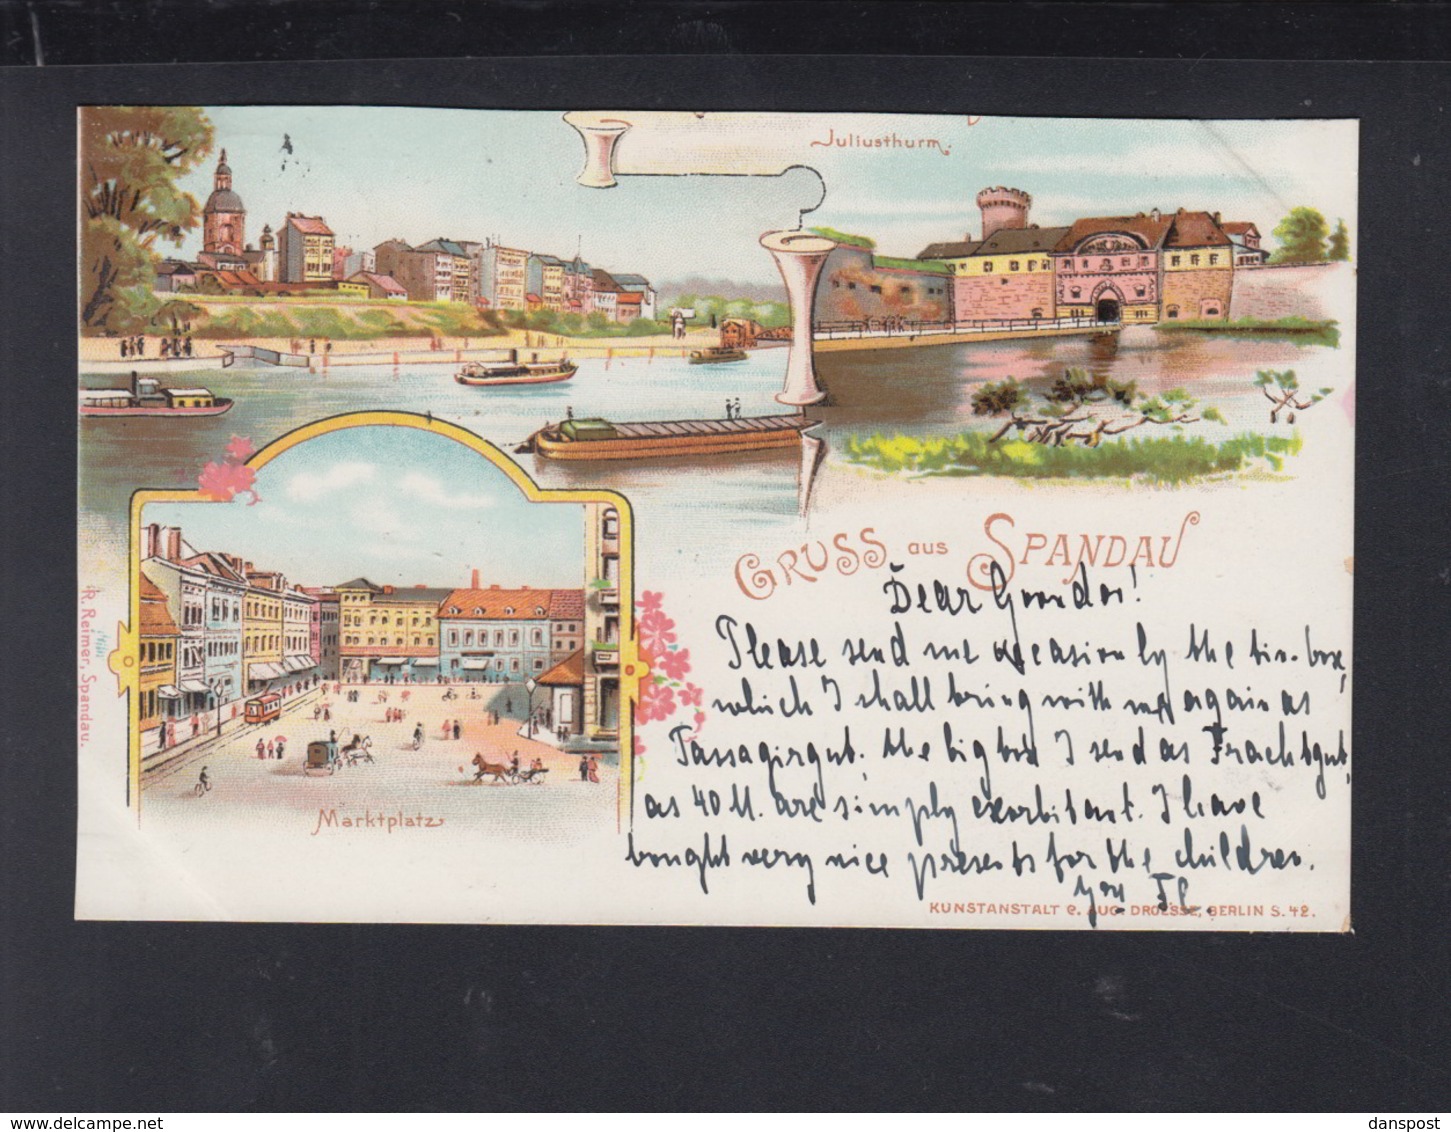 Juliusthurm.
GRUSS AUS SPANDAU
Dear
Please send me occasionly the tin-box,
which I shall bring with me again as
Passagirgut. the big box I send as Frachtgut,
as 40 M. are simply exorbitant. I have
bought very nice presents for the children.
R. Reimer, Spandau.
Marktplatz
KUNSTANSTALT C. AUG. DROESSE, BERLIN S. 42.
delcampe.net
danspost